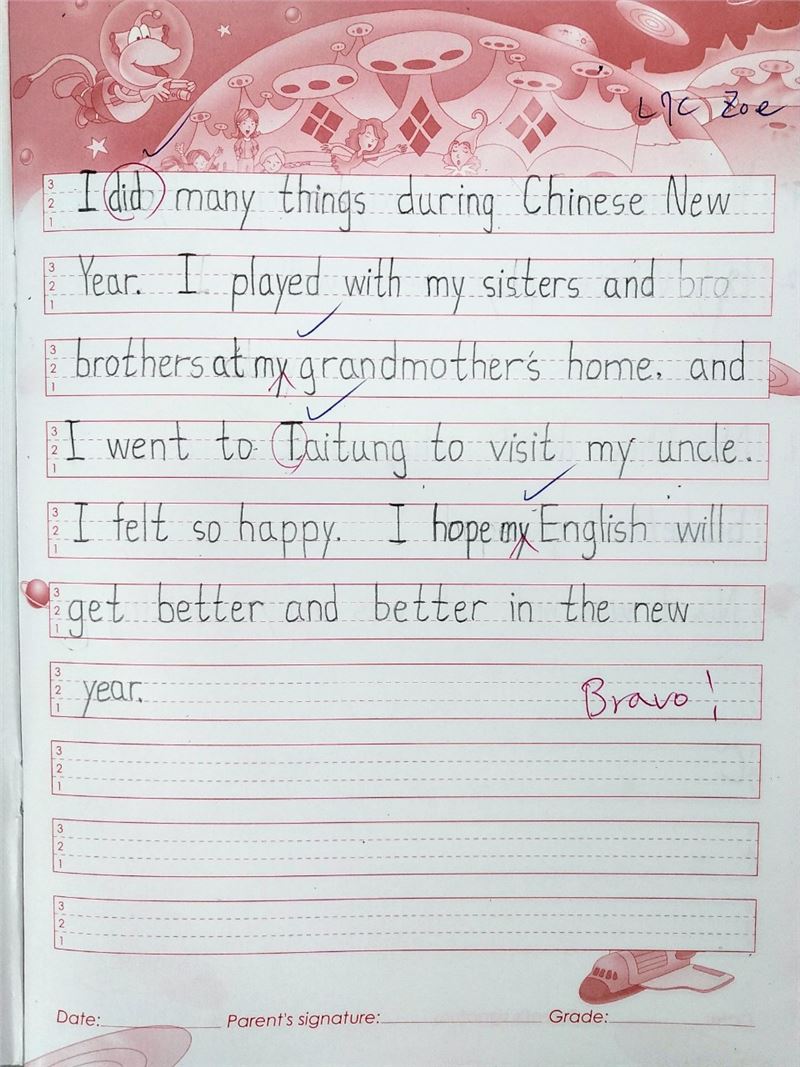 L7C Zoe
I did many things during Chinese New
Year. I played with my sisters and bro
brothers at my grandmother's home. and
I went to Taitung to visit my uncle.
I felt so happy. I hope my English will
get better and better in the new
year.
Bravo!
3
2
1
3
2
1
3
2
1
3
2
1
3
2
1
3
2
1
3
2
1
3
2
1
3
2
1
3
2
1
Date: Parent's signature: Grade: